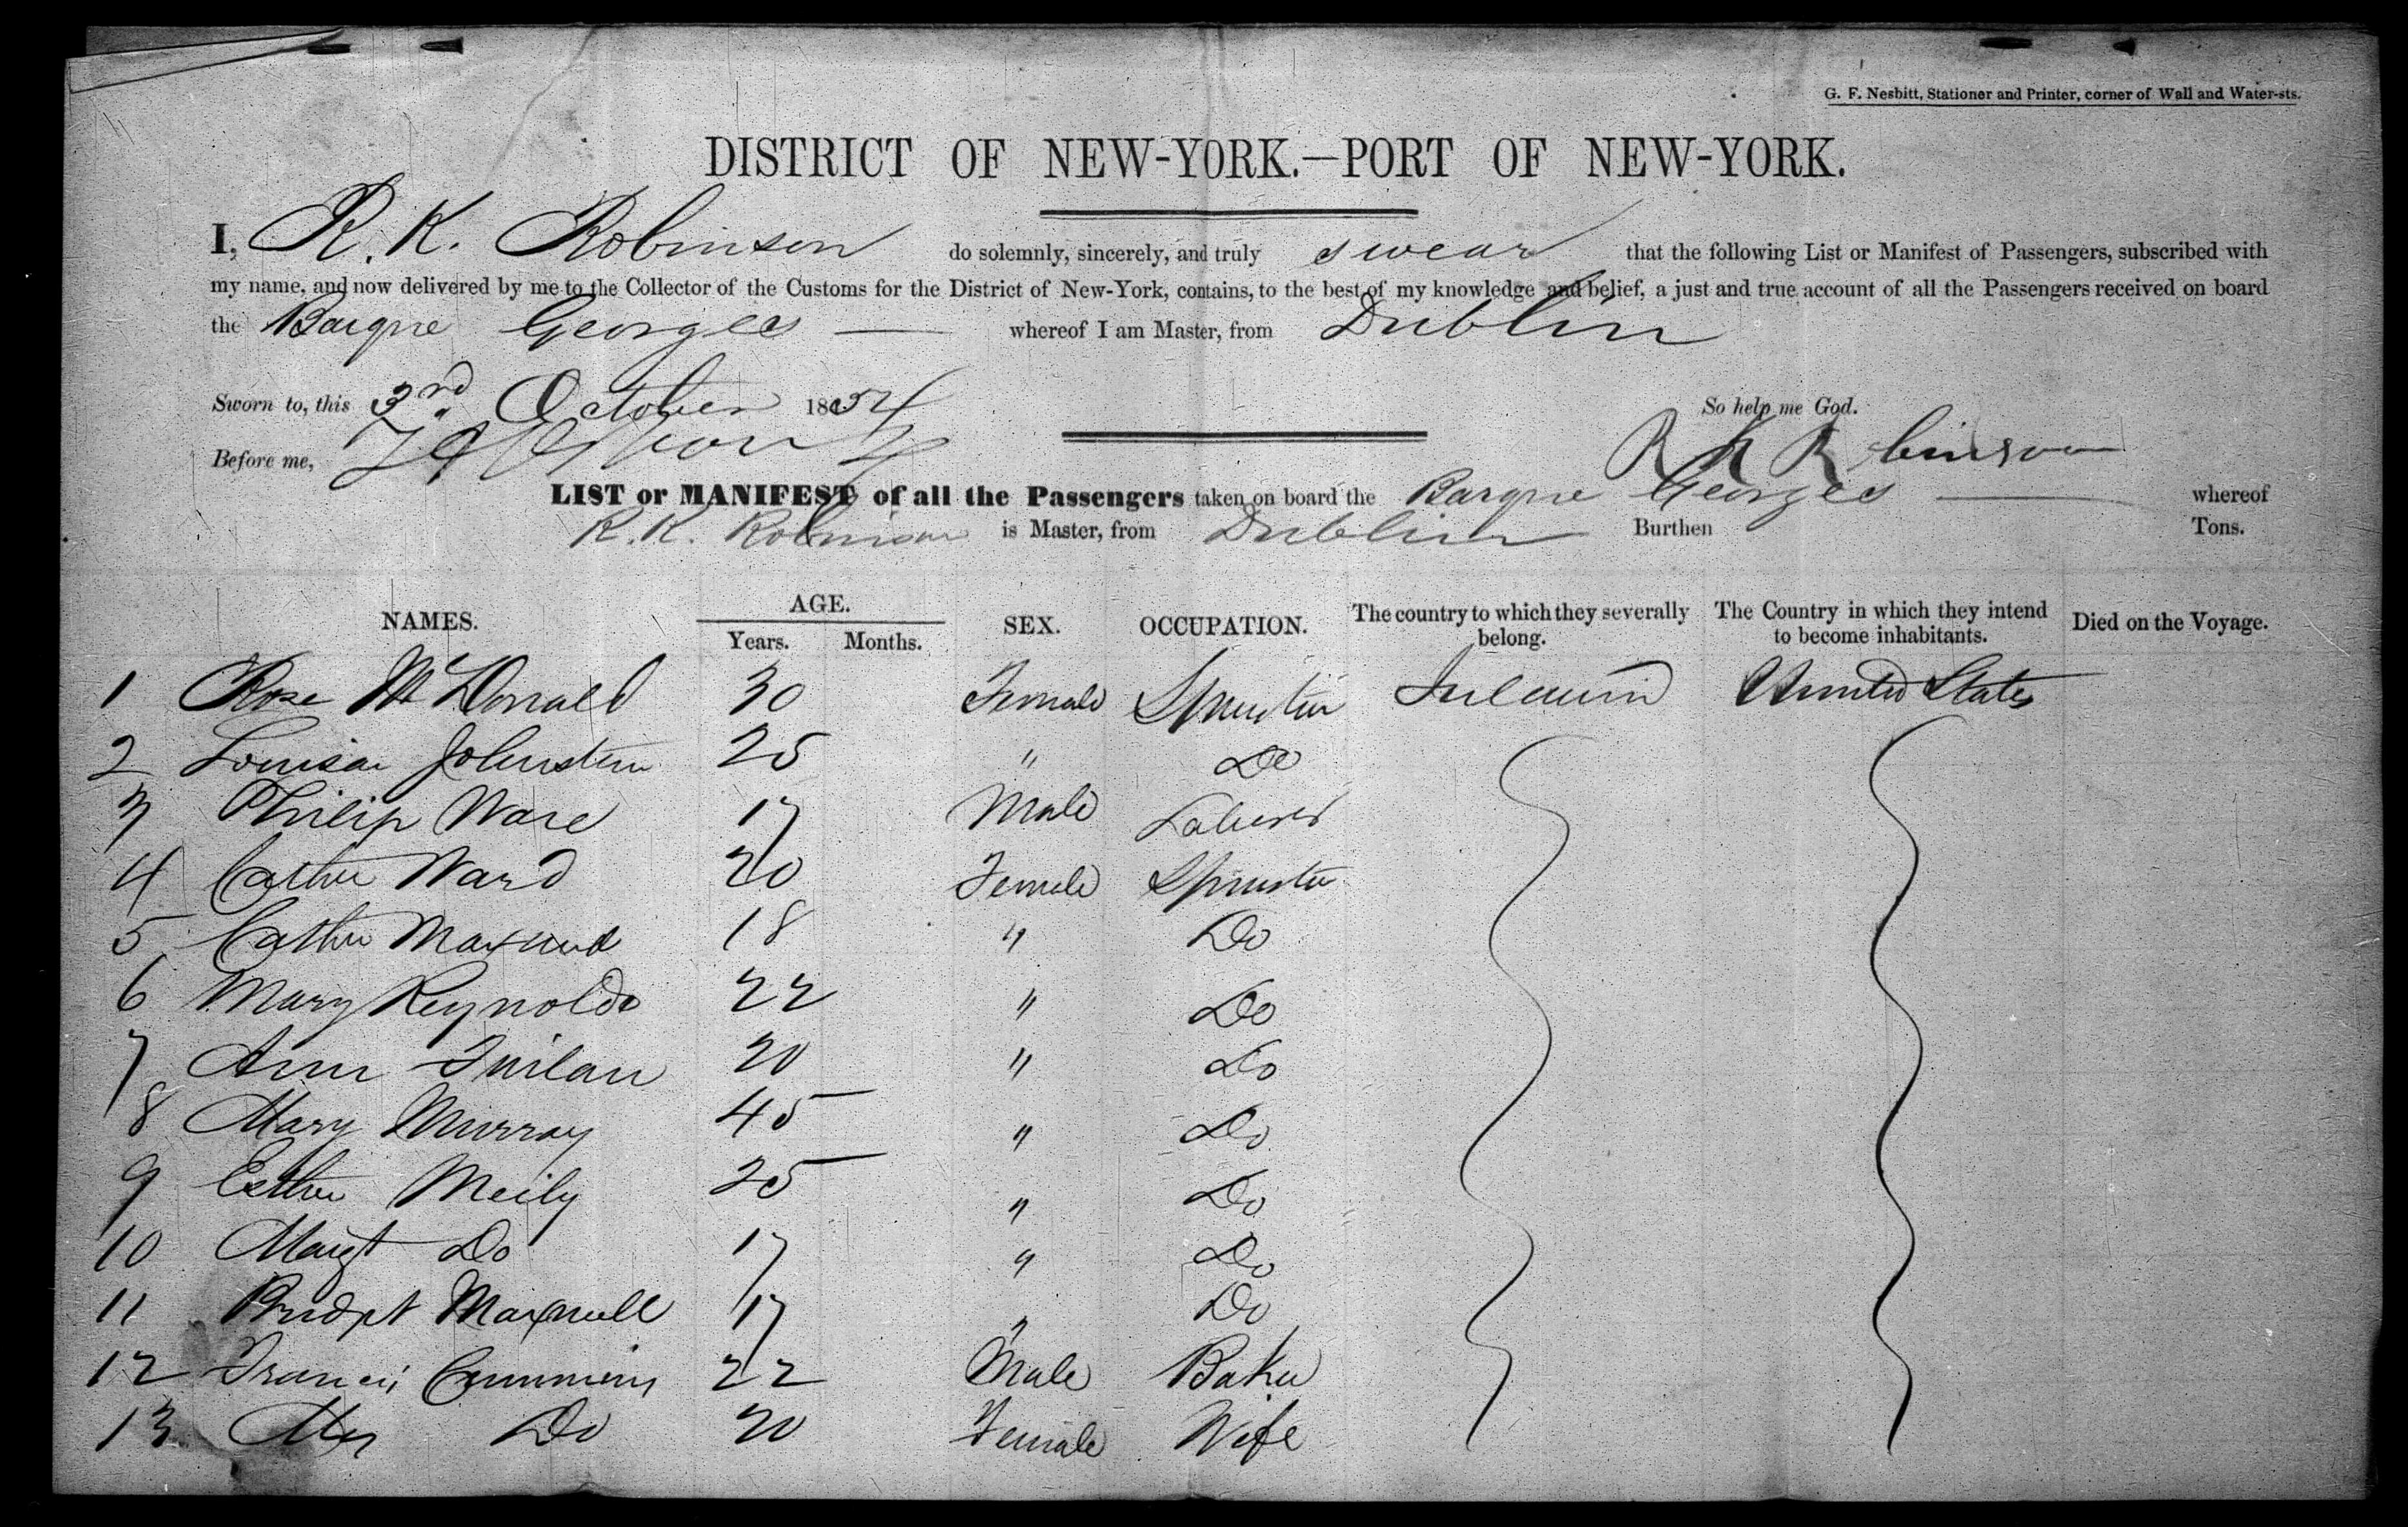 G. F. Nesbitt, Stationer and Printer, corner of Wall and Water-sts.
DISTRICT OF NEW-YORK.—PORT OF NEW-YORK.
I, R. K. Robinson do solemnly, sincerely, and truly swear that the following List or Manifest of Passengers, subscribed with
my name, and now delivered by me to the Collector of the Customs for the District of New-York, contains, to the best of my knowledge and belief, a just and true account of all the Passengers received on board
the Barque Georges — whereof I am Master, from Dublin
Sworn to, this 3rd October 1854 So help me God.
Before me, R K Robinson
LIST or MANIFEST of all the Passengers taken on board the Barque Georges — whereof
R. K. Robinson is Master, from Dublin Burthen Tons.
NAMES. AGE. Years. Months. SEX. OCCUPATION. The country to which they severally belong. The Country in which they intend to become inhabitants. Died on the Voyage.
1 Rose McDonald 30 Female Spinster Ireland United States
2 Louisa Johnston 25 " Do
3 Philip Ware 17 Male Labourer
4 Cathe Ward 20 Female Spinster
5 Cathe 18 " Do
6 Mary Reynolds 22 " Do
7 Ann 20 " Do
8 Mary Murray 45 " Do
9 Esther Meily 25 " Do
10 Margt Do 17 " Do
11 Bridgt Maxwell 17 " Do
12 Francis Cummins 22 Male Baker
13 Mrs Do 20 Female Wife